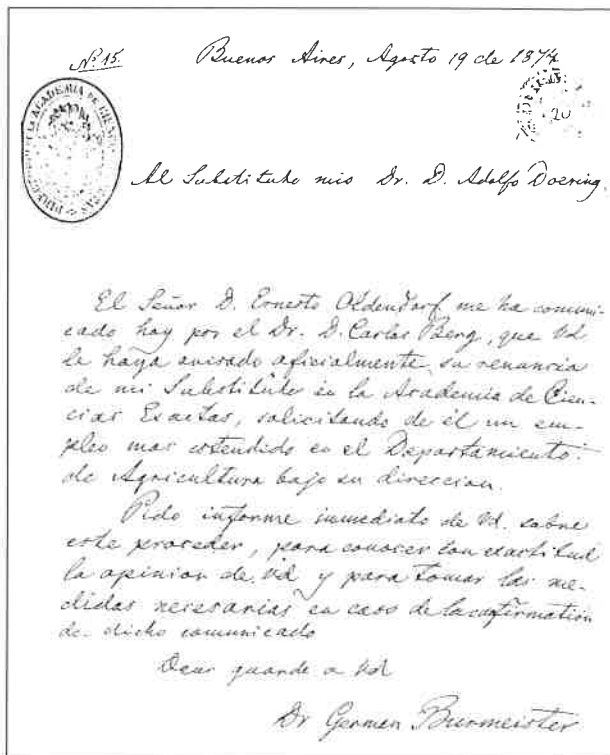 Nº 15.
Buenos Aires, Agosto 19 de 1874
ACADEMIA DE
20
Al Substituto mio Dr. D. Adolfo Doering.
El Señor D. Ernesto Oldendorf me ha comuni-
cado hay por el Dr. D. Carlos Berg, que Vd
le haya avisado oficialmente su renuncia
de mi Substituto en la Academia de Cien-
cias Exactas, solicitando de él un em-
pleo mas estendido en el Departamiento
de Agricultura bajo su direccion.
Pido informe immediato de Vd. sobre
este proceder, para conocer con exactitud
la opinion de Vd y para tomar las me-
didas necesarias en caso de la confirmation
de dicho comunicado
guarde a Vd
Dr German Burmeister